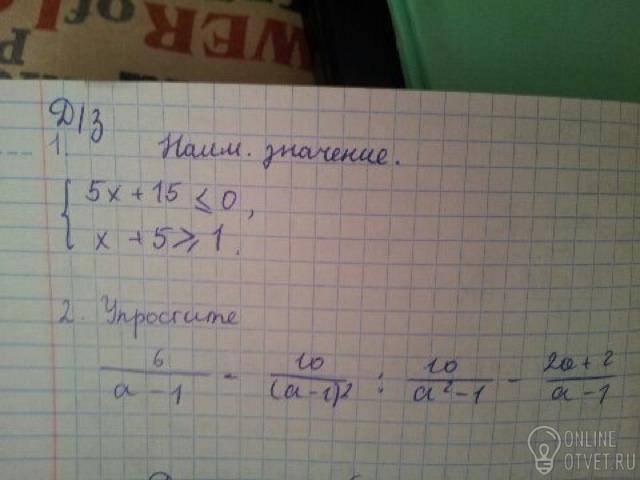 WER of
Д/З
1. Наим. значение.
{ 5x + 15 ≤ 0,
x + 5 ≥ 1.
2. Упростите
6/(a - 1) - 10/(a-1)² : 10/(a² - 1) - (2a + 2)/(a - 1)
ONLINE
OTVET.RU